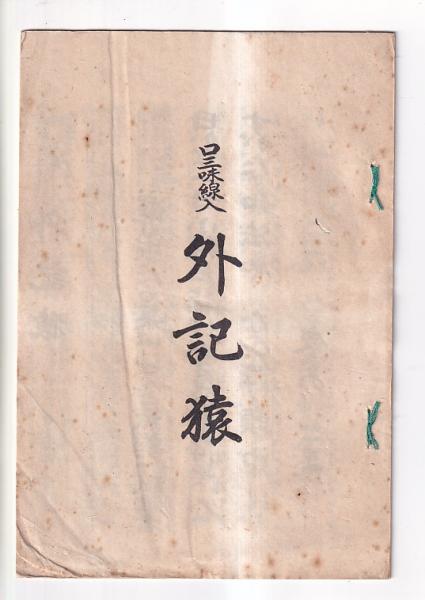 口三味線入
外記猿